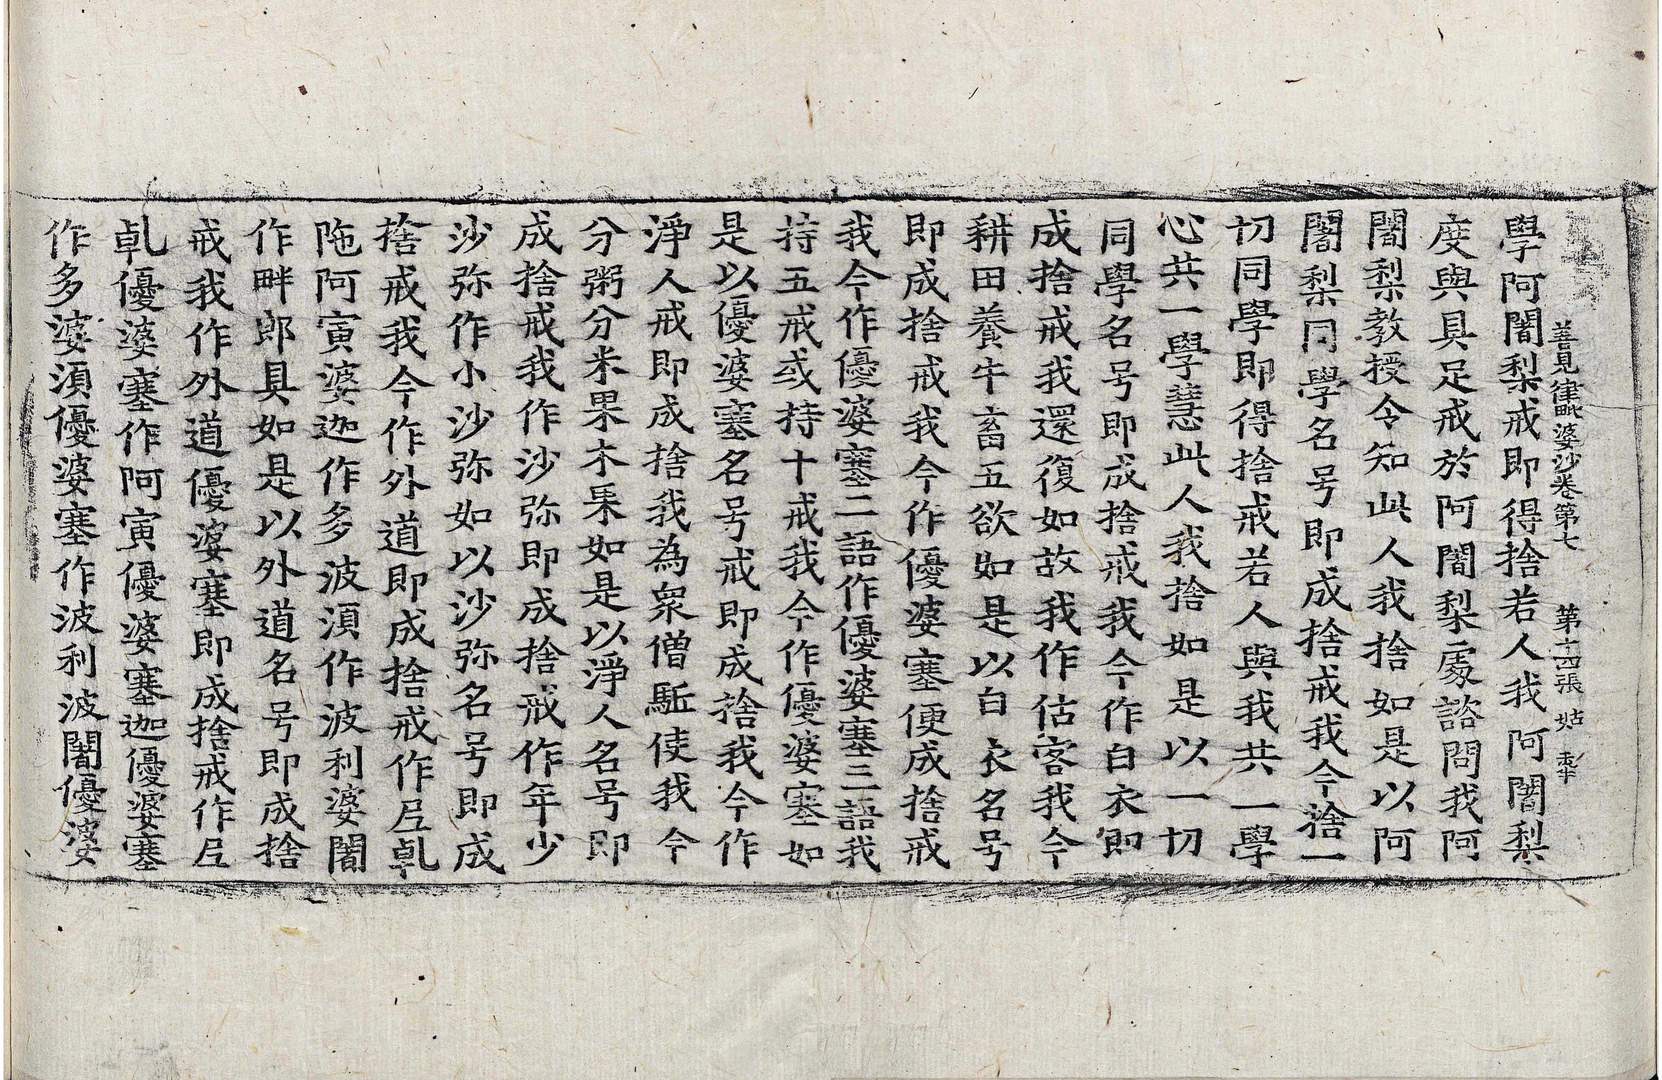 善見律毗婆沙卷第七 第十四張 姑
學阿闍梨戒即得捨若人我阿闍梨
度與具足戒於阿闍梨處諮問我阿
闍梨教授令知此人我捨如是以阿
闍梨同學名号即成捨戒我今捨一
切同學即得捨戒若人與我共一學
心共一學慧此人我捨如是以一切
同學名号即成捨戒我今作白衣即
成捨戒我還復如故我作估客我今
耕田養牛畜五欲如是以白衣名号
即成捨戒我今作優婆塞便成捨戒
我今作優婆塞二語作優婆塞三語我
持五戒或持十戒我今作優婆塞如
是以優婆塞名号戒即成捨我今作
淨人戒即成捨我為衆僧駈使我今
分粥分米果木菓如是以淨人名号即
成捨戒我作沙弥即成捨戒作年少
沙弥作小沙弥如以沙弥名号即成
捨戒我今作外道即成捨戒作尼乹
陁阿寅婆迦作多波湏作波利婆闍
作畔郎具如是以外道名号即成捨
戒我作外道優婆塞即成捨戒作尼
乹優婆塞作阿寅優婆塞迦優婆塞
作多婆湏優婆塞作波利波闍優婆